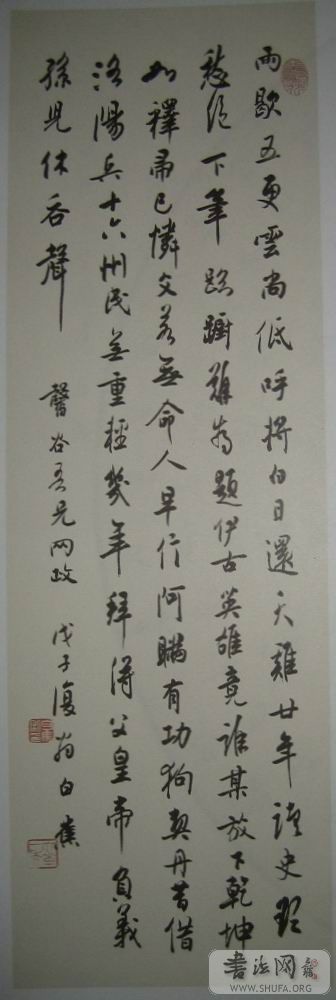 雨歇五更雲尚低呼將白日還天雞廿年讀史
愁絕下筆踟躕難為題伊古英雄竟誰某放下乾坤
如釋帚已憐文若無命人早行阿瞞有功狗契丹昔借
洛陽兵十六州民無重輕幾年拜得父皇帝負義
孫兒休吞聲
馨谷吾兄兩政 戊子復翁白蕉
書法网
WWW.SHUFA.ORG